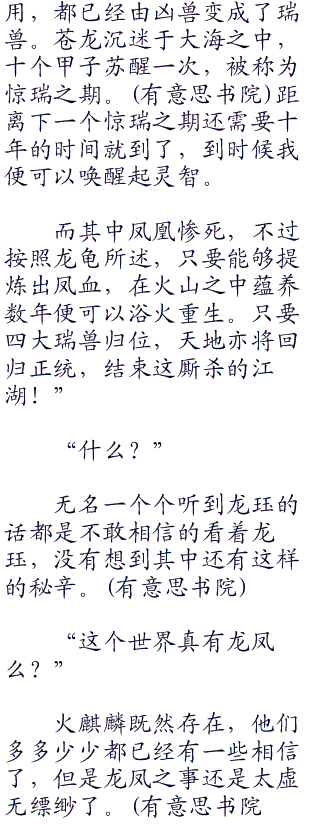 用，都已经由凶兽变成了瑞
兽。苍龙沉迷于大海之中，
十个甲子苏醒一次，被称为
惊瑞之期。(有意思书院)距
离下一个惊瑞之期还需要十
年的时间就到了，到时候我
便可以唤醒起灵智。
而其中凤凰惨死，不过
按照龙龟所述，只要能够提
炼出凤血，在火山之中蕴养
数年便可以浴火重生。只要
四大瑞兽归位，天地亦将回
归正统，结束这厮杀的江
湖！”
“什么？”
无名一个个听到龙珏的
话都是不敢相信的看着龙
珏，没有想到其中还有这样
的秘辛。(有意思书院)
“这个世界真有龙凤
么？”
火麒麟既然存在，他们
多多少少都已经有一些相信
了，但是龙凤之事还是太虚
无缥缈了。(有意思书院